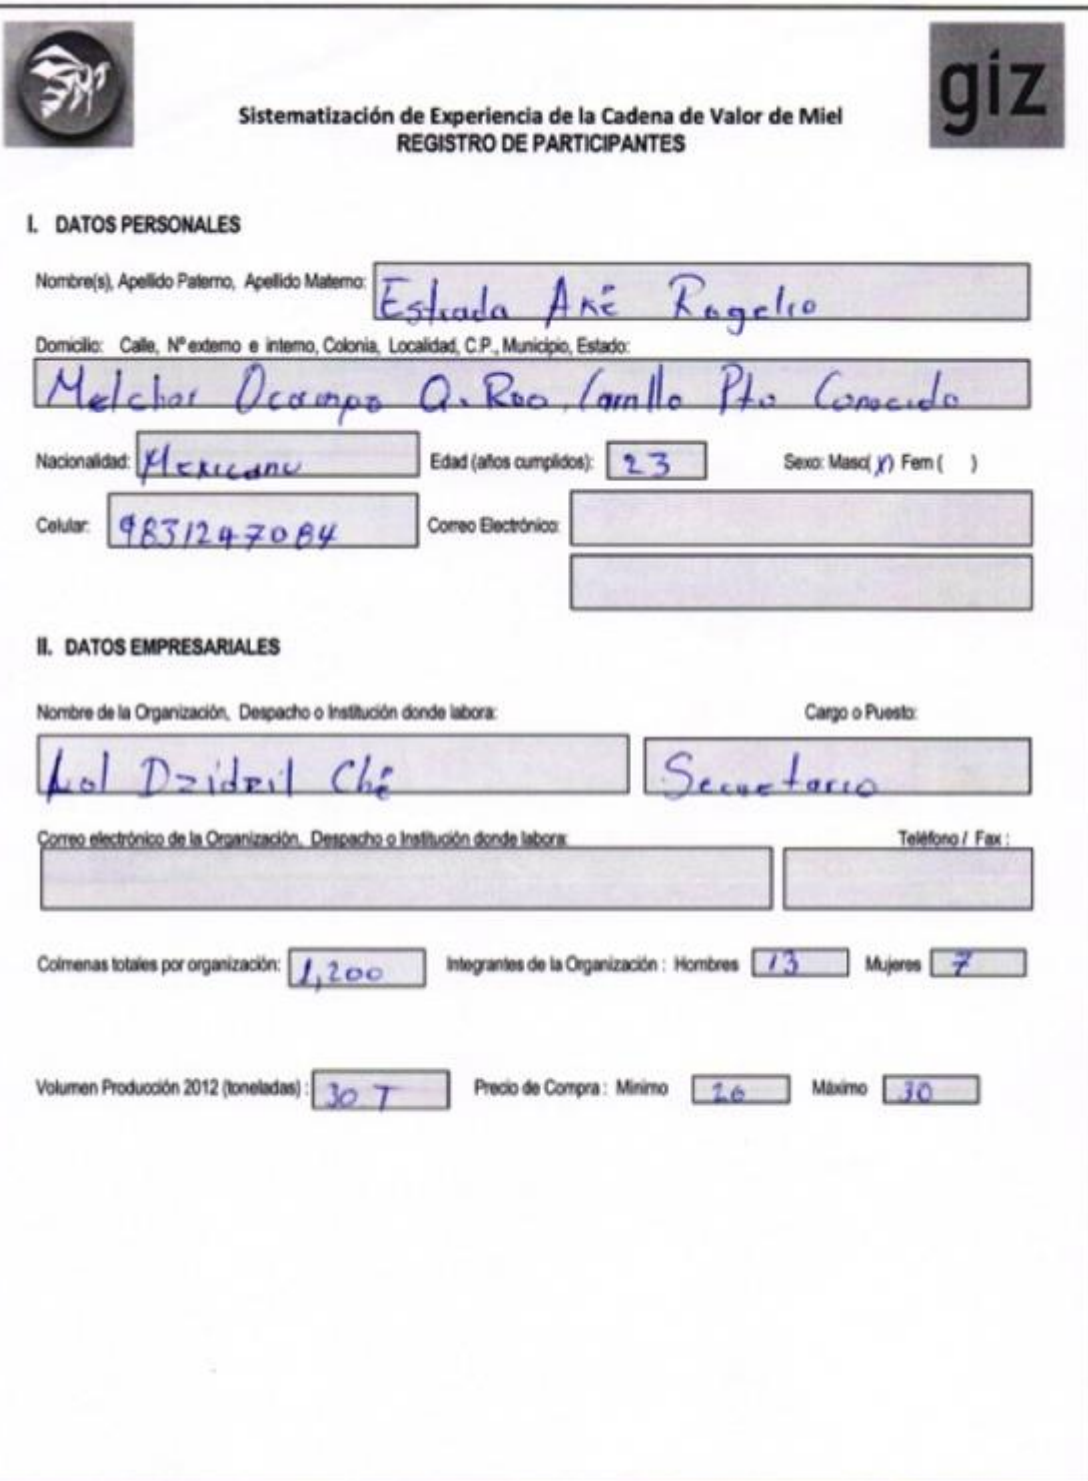 giz
Sistematización de Experiencia de la Cadena de Valor de Miel
REGISTRO DE PARTICIPANTES
I. DATOS PERSONALES
Nombre(s), Apellido Paterno, Apellido Materno: Estrada Aké Rogelio
Domicilio: Calle, Nº externo e interno, Colonia, Localidad, C.P., Municipio, Estado:
Melchor Ocampo Q. Roo, Carrillo Pto Conocido
Nacionalidad: Mexicano Edad (años cumplidos): 23 Sexo: Masc( X ) Fem ( )
Celular: 9831247084 Correo Electrónico:
II. DATOS EMPRESARIALES
Nombre de la Organización, Despacho o Institución donde labora: Cargo o Puesto:
Lol Dzidzil Ché Secretario
Correo electrónico de la Organización, Despacho o Institución donde labora: Teléfono / Fax :
Colmenas totales por organización: 1,200 Integrantes de la Organización : Hombres 13 Mujeres 7
Volumen Producción 2012 (toneladas) : 30 T Precio de Compra : Minimo 26 Máximo 30